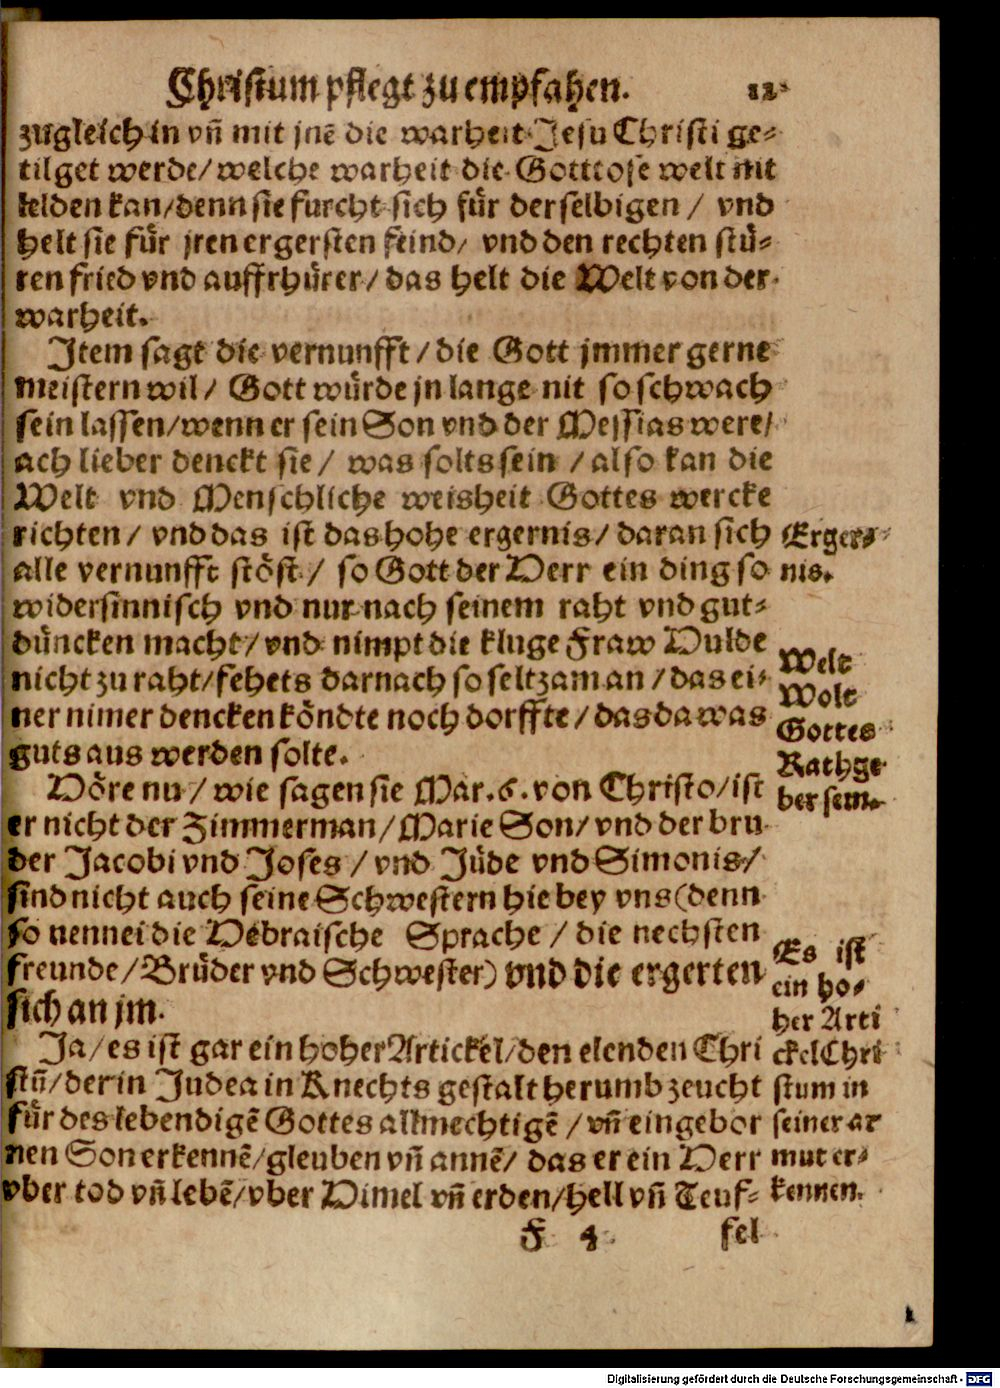 Christum pflegt zu empfahen. 12.
zugleich in vñ mit jnē die warheit Jesu Christi ge-
tilget werde/ welche warheit die Gottlose welt nit
leiden kan/ denn sie furcht sich für derselbigen / vnd
helt sie für jren ergersten feind/ vnd den rechten stö-
ren fried vnd auffrhürer/ das helt die Welt von der
warheit.
Item sagt die vernunfft / die Gott jmmer gerne
meistern wil / Gott würde jn lange nit so schwach
sein lassen/ wenn er sein Son vnd der Messias were/
ach lieber denckt sie / was solts sein / also kan die
Welt vnd Menschliche weisheit Gottes wercke
richten / vnd das ist das hohe ergernis/ daran sich
alle vernunfft stöst / so Gott der Herr ein ding so
widersinnisch vnd nur nach seinem raht vnd gut-
düncken macht/ vnd nimpt die kluge Fraw Hulde
nicht zu raht/ fehets darnach so seltzam an / das ei-
ner nimer dencken köndte noch dörffte / das da was
guts aus werden solte.
Höre nu / wie sagen sie Mar. 6. von Christo/ ist
er nicht der Zimmerman/ Marie Son/ vnd der bru
der Jacobi vnd Joses / vnd Jüde vnd Simonis/
sind nicht auch seine Schwestern hie bey vns (denn
so nennet die Hebraische Sprache / die nechsten
freunde/ Brüder vnd Schwester) vnd die ergerten
sich an jm.
Ja/ es ist gar ein hoher Artickel/ den elenden Chri
stū/ der in Judea in Knechts gestalt herumb zeucht
für des lebendigē Gottes allmechtigē / vñ eingebor
nen Son erkennē/ gleuben vñ annē/ das er ein Herr
vber tod vñ lebē/ vber Himel vñ erden/ hell vñ Teuf-
F 4 fel
Erger-
nis.
Welt
Wolt
Gottes
Rathge
ber sein.
Es ist
ein ho-
her Arti
ckel Chri
stum in
seiner ar
mut er-
kennen.
Digitalisierung gefördert durch die Deutsche Forschungsgemeinschaft - DFG